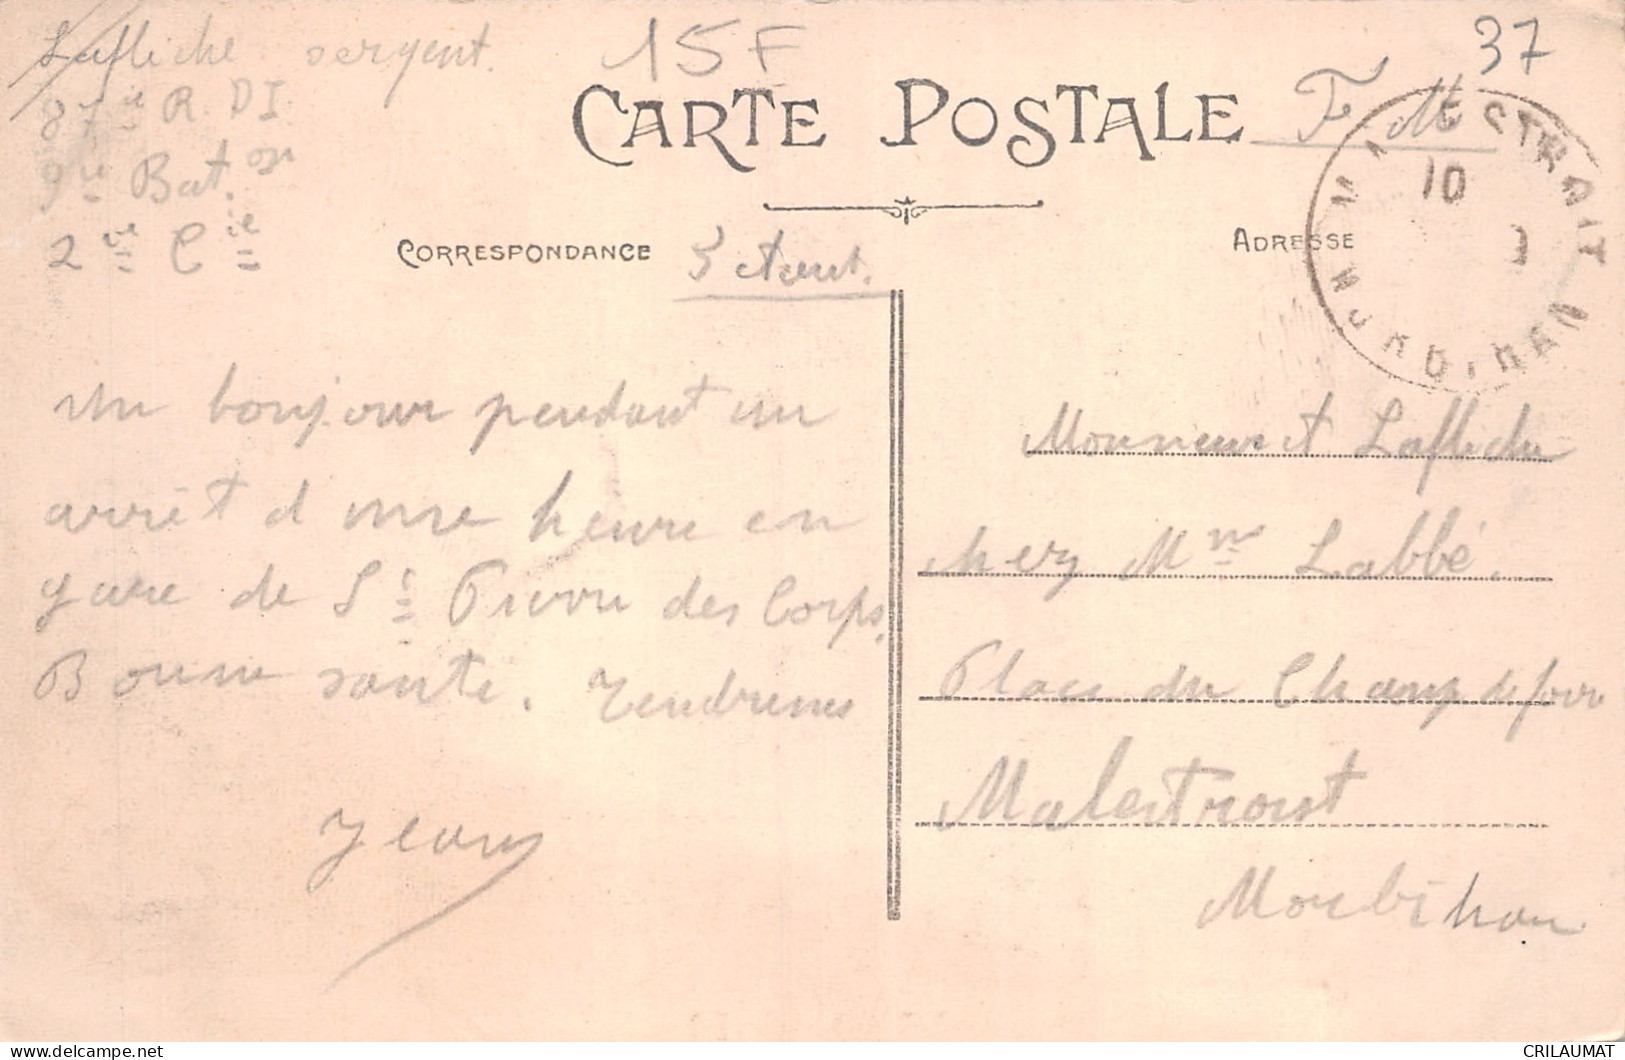 Lafliche sergent.
87ie R.D.I
9ie Bat.on
2ie Cie
15F
37
CARTE POSTALE
F. M
CORRESPONDANCE
3 Aout.
ADRESSE
MALESTROIT
MORBIHAN
10
Un bonjour pendant un
arrêt d'une heure en
gare de St Pierre des Corps.
Bonne santé. Tendresses
Jean
Monsieur et Lafliche
chez Mme Labbé.
Place du Champ de foire
Malestroit
Morbihan
CRILAUMAT